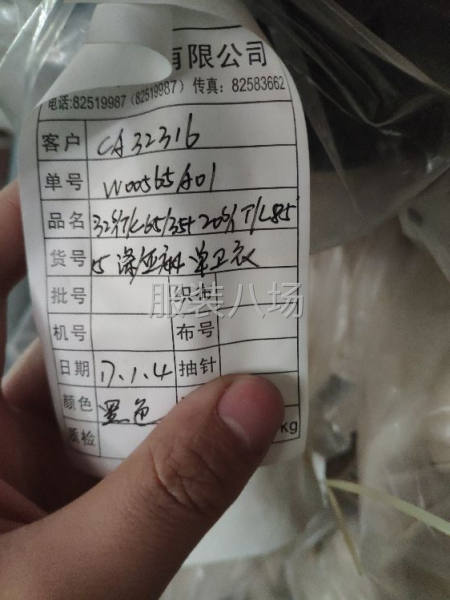 有限公司
电话:82519987 (82519987) 传真: 82583662
客户 CA32316
单号 W00565A01
品名 32S/T/C65/35+20S/T/C85
货号 15 涤纶 单卫衣
批号
机号 布号
日期 17.1.4 抽针
颜色 黑色
质检 kg
服装八场